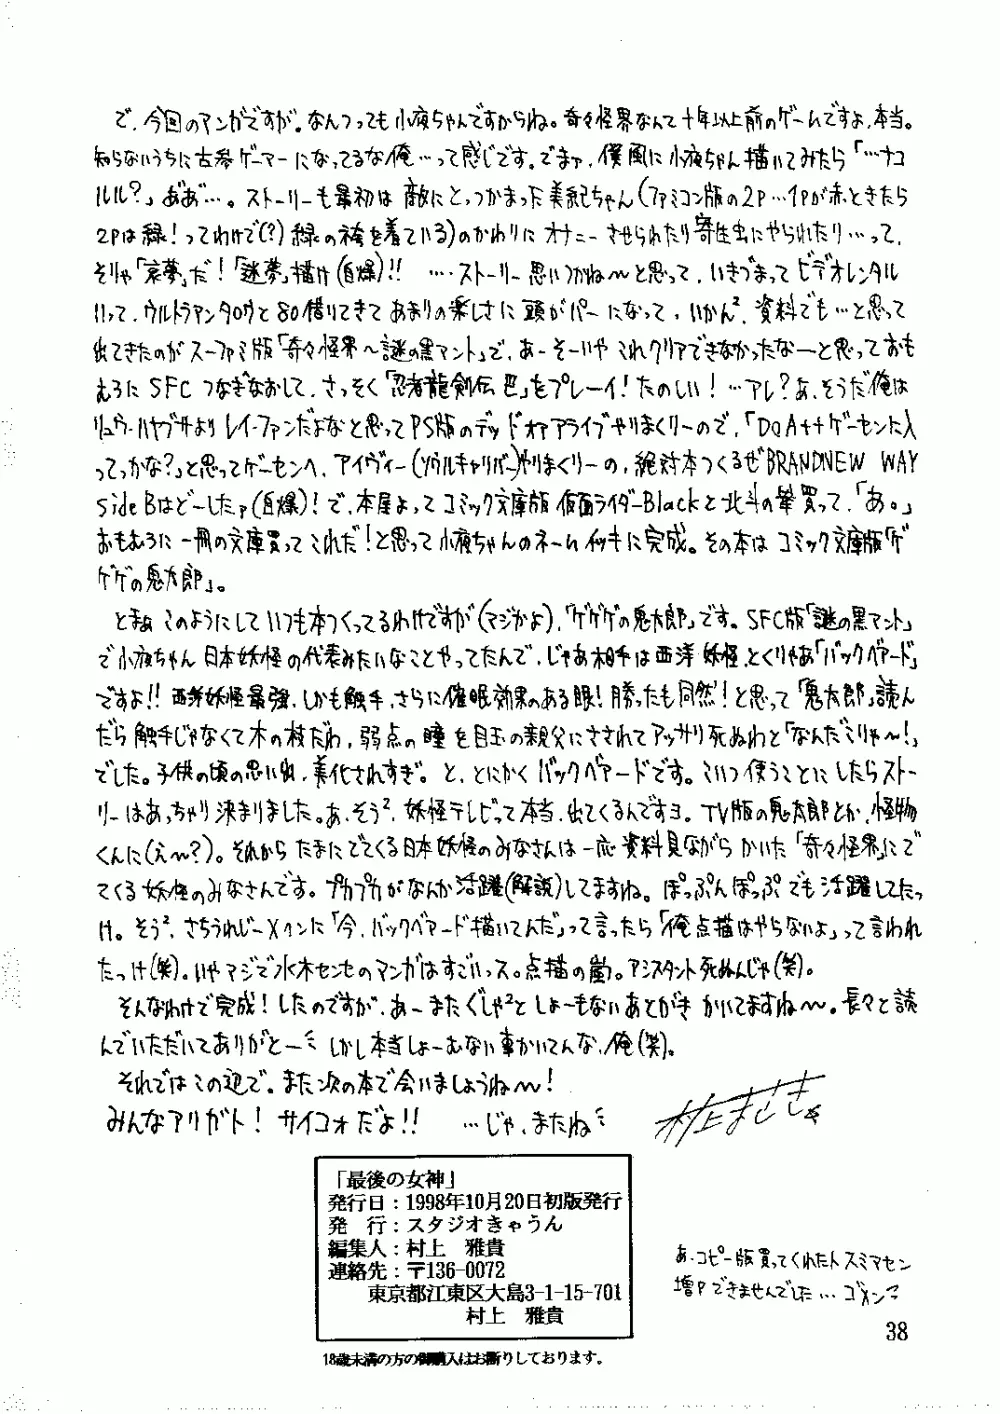 で、今回のマンガですが。なんつっても小夜ちゃんですからね。奇々怪界なんて十年以上前のゲームですよ、本当。
知らないうちに古参ゲーマーになってるな俺…って感じです。でまァ、僕風に小夜ちゃん描いてみたら「…ナコ
ルル?」ああ…。ストーリーも最初は敵にとっつかまった美紀ちゃん(ファミコン版の2P…1Pが赤ときたら
2Pは緑!ってわけで(?)緑の袴を着ている)のかわりにオナニーさせられたり寄生虫にやられたり…って、
そりゃ「哀夢」だ!「迷夢」描け(自爆)!! ….ストーリー思いつかね〜と思って、いきづまってビデオレンタル
いって、ウルトラマンタロウと80借りてきてあまりの楽しさに頭がパーになって。いかん²、資料でも…と思って
出てきたのがスーファミ版「奇々怪界〜謎の黒マント」で、あーそーいやこれクリアできなかったなーと思っておも
むろにSFCつなぎなおして、さっそく「忍者龍剣伝巴」をプレーイ!たのしい!…アレ?あ、そうだ俺は
リュウ・ハヤブサよりレイ・ファンだよなと思ってPS版のデッドオアアライブやりまくりーので、「DOA++ゲーセンに入
ってっかな?」と思ってゲーセンへ、アイヴィー(ソウルキャリバー)やりまくりーの、絶対本つくるぜBRANDNEW WAY
sideBはどーしたァ(自爆)!で、本屋よってコミック文庫版仮面ライダーBlackと北斗の拳買って、「あ。」
おもむろに一冊の文庫買ってこれだ!と思って小夜ちゃんのネームイッキに完成。その本はコミック文庫版「ゲ
ゲゲの鬼太郎」。
とまぁこのようにしていつも本つくってるわけですが(マジかよ)、「ゲゲゲの鬼太郎」です。SFC版「謎の黒マント」
で小夜ちゃん日本妖怪の代表みたいなことやってたんで、じゃあ相手は西洋妖怪、とくりゃあ「バックベアード」
ですよ!!西洋妖怪最強、しかも触手、さらに催眠効果のある眼!勝ったも同然!と思って「鬼太郎」読ん
だら触手じゃなくて木の枝だわ、弱点の瞳を目玉の親父にさされてアッサリ死ぬわと「なんだこりゃ〜!」
でした。子供の頃の思い出、美化されすぎ。と、とにかくバックベアードです。こいつ使うことにしたらストー
リーはあっさり決まりました。あ、そう²、妖怪テレビって本当、出てくるんですヨ。TV版の鬼太郎とか、怪物
くんに(え〜?)。それからたまにでてくる日本妖怪のみなさんは一応資料見ながらかいた「奇々怪界」にで
てくる妖怪のみなさんです。プカプカがなんか活躍(解説)してますね。ぽっぷんぽっぷでも活躍してたっ
け。そう²、さちうれじーXクンに「今、バックベアード描いてんだ」って言ったら「俺点描はやらないよ」って言われ
たっけ(笑)。いやマジで水木センセのマンガはすごいっス。点描の嵐。アシスタント死ぬんじゃ(笑)。
そんなわけで完成!したのですが、あーまたぐじゃ²としょーもないあとがきかいてますね〜。長々と読
んでいただいてありがとー しかし本当しょーむない事かいてんな、俺(笑)。
それではこの辺で。また次の本で会いましょうね〜!
みんなアリガト! サイコォだよ!! …じゃ、またね
村上まさき
「最後の女神」
発行日:1998年10月20日初版発行
発 行:スタジオきゃうん
編集人:村上 雅貴
連絡先:〒136-0072
東京都江東区大島3-1-15-701
村上 雅貴
18歳未満の方の御購入はお断りしております。
あ、コピー版買ってくれた人スミマセン
増Pできませんでした…ゴメン
38